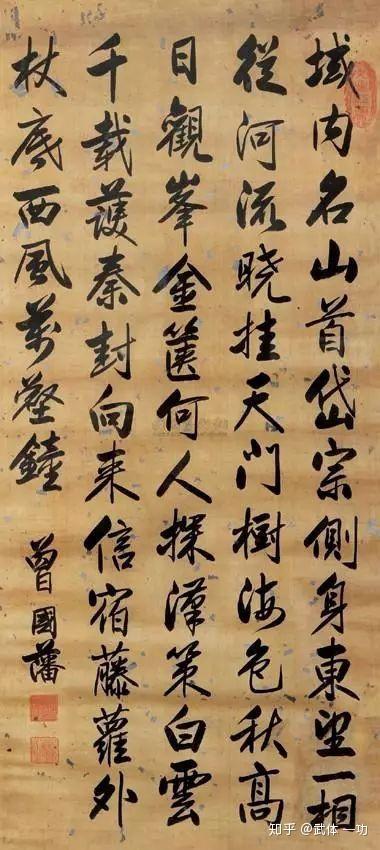 域内名山首岱宗側身東望一相
從河流晓挂天門樹海色秋高
日觀峯金篋何人探漢策白雲
千載護秦封向来信宿藤蘿外
杖底西風萬壑鐘
曾國藩
知乎 @武体一功